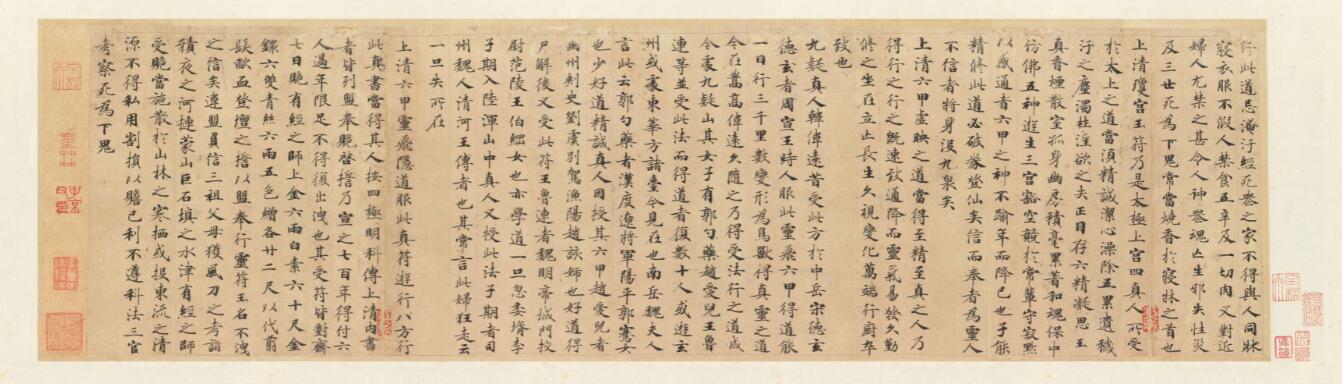 行此道忌淹汙經死喪之家不得與人同牀
寢衣服不假人禁食五辛及一切肉又對近
婦人尤禁之甚令人神喪魂亡生邪失性災
及三世死為下鬼常當燒香於寢牀之首也
上清瓊宮玉符乃是太極上宮四真人所受
於太上之道當須精誠潔心澡除五累遺穢
汙之塵濁杜淫欲之失正目存六精凝思玉
真香煙散室孤身幽房積毫累著和魂保中
仿佛五神遊生三宮豁空競於常輩守寂默
以感通者六甲之神不踰年而降己也子能
精修此道必破券登仙矣信而奉者為靈人
不信者將身沒九泉矣
上清六甲虛映之道當得至精至真之人乃
得行之行之既速致通降而靈氣易發久勤
修之坐在立亡長生久視變化萬端行廚卒
致也
九疑真人韓偉遠昔受此方於中岳宋德玄
德玄者周宣王時人服此靈飛六甲得道能
一日行三千里數變形為鳥獸得真靈之道
今在嵩高偉遠久隨之乃得受法行之道成
今處九疑山其女子有郭勺藥趙愛兒王魯
連等並受此法而得道者復數十人或遊玄
州或處東華方諸臺今見在也南岳魏夫人
言此云郭勺藥者漢度遼將軍陽平郭騫女
也少好道精誠真人因授其六甲趙愛兒者
幽州刺史劉虞別駕漁陽趙該姉也好道得
尸解後又受此符王魯連者魏明帝城門校
尉范陵王伯綱女也亦學道一旦忽委壻李
子期入陸渾山中真人又授此法子期者司
州魏人清河王傳者也其常言此婦狂走云
一旦失所在
上清六甲靈飛隱道服此真符遊行八方行
此真書當得其人按四極明科傳上清內書
者皆列盟奉貺啓擔乃宣之七百年得付六
人過年限足不得復出洩也其受符皆對齋
七日貺有經之師上金六兩白素六十尺金
鐶六雙青絲六兩五色繒各廿二尺以代翦
髮歃血登壇之擔以盟奉行靈符玉名不洩
之信矣違盟負信三祖父母獲風刀之考詣
積夜之河揵蒙山巨石填之水津有經之師
受貺當施散於山林之寒栖或投東流之清
源不得私用割損以贍己利不遵科法三官
考察死為下鬼